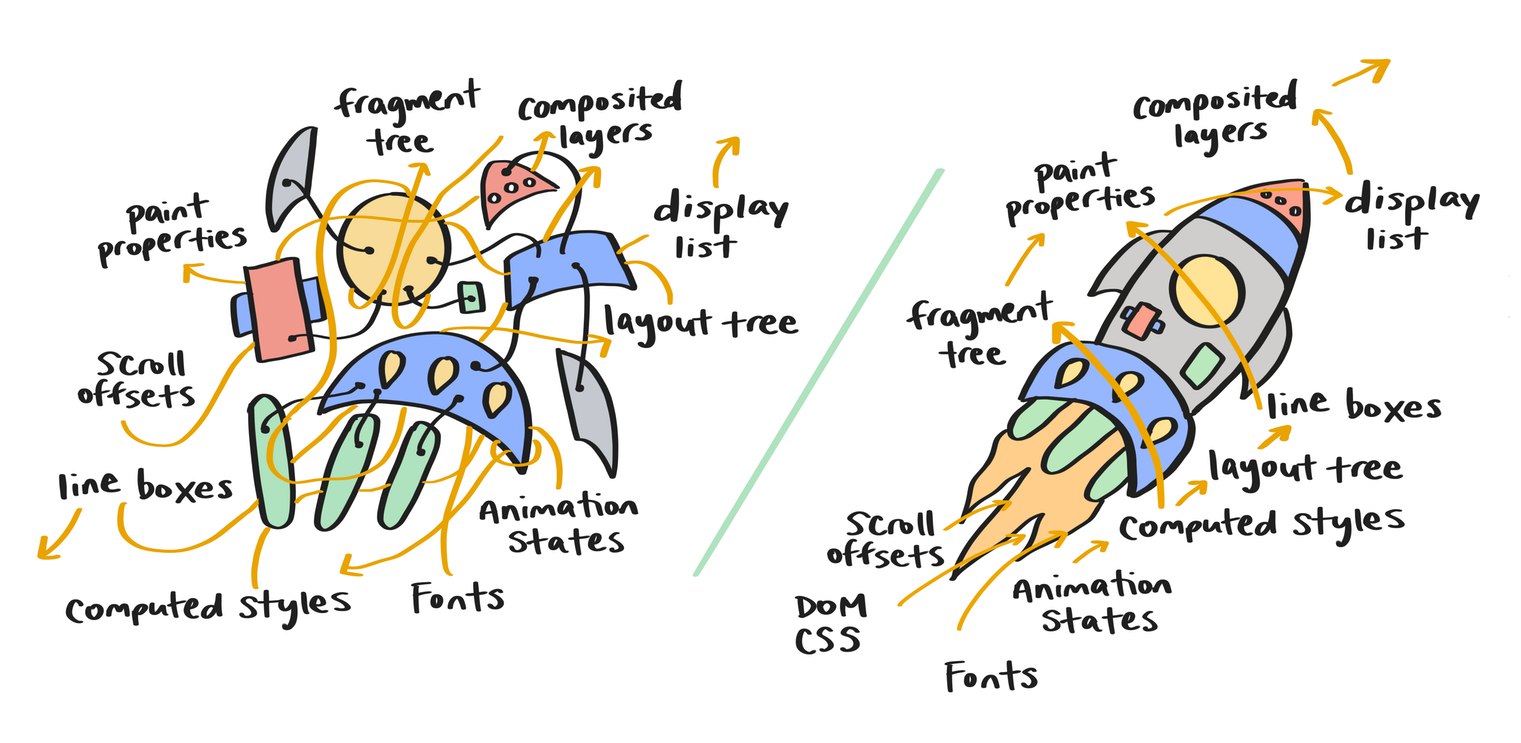 fragment
tree
composited
layers
paint
properties
display
list
layout tree
Scroll
offsets
line boxes
Animation
States
Computed Styles
Fonts
composited
layers
paint
properties
display
list
fragment
tree
line boxes
layout tree
Computed Styles
Scroll
offsets
Animation
States
DOM
CSS
Fonts